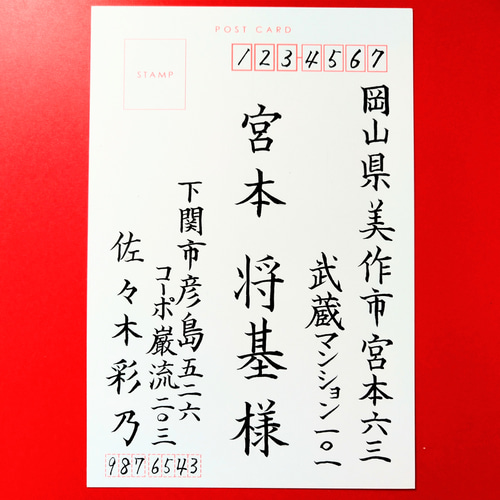 POST CARD
STAMP
123-4567
岡山県美作市宮本六三
武蔵マンション一〇一
宮本 将基様
下関市彦島五二六
コーポ巌流二〇三
佐々木彩乃
9876543